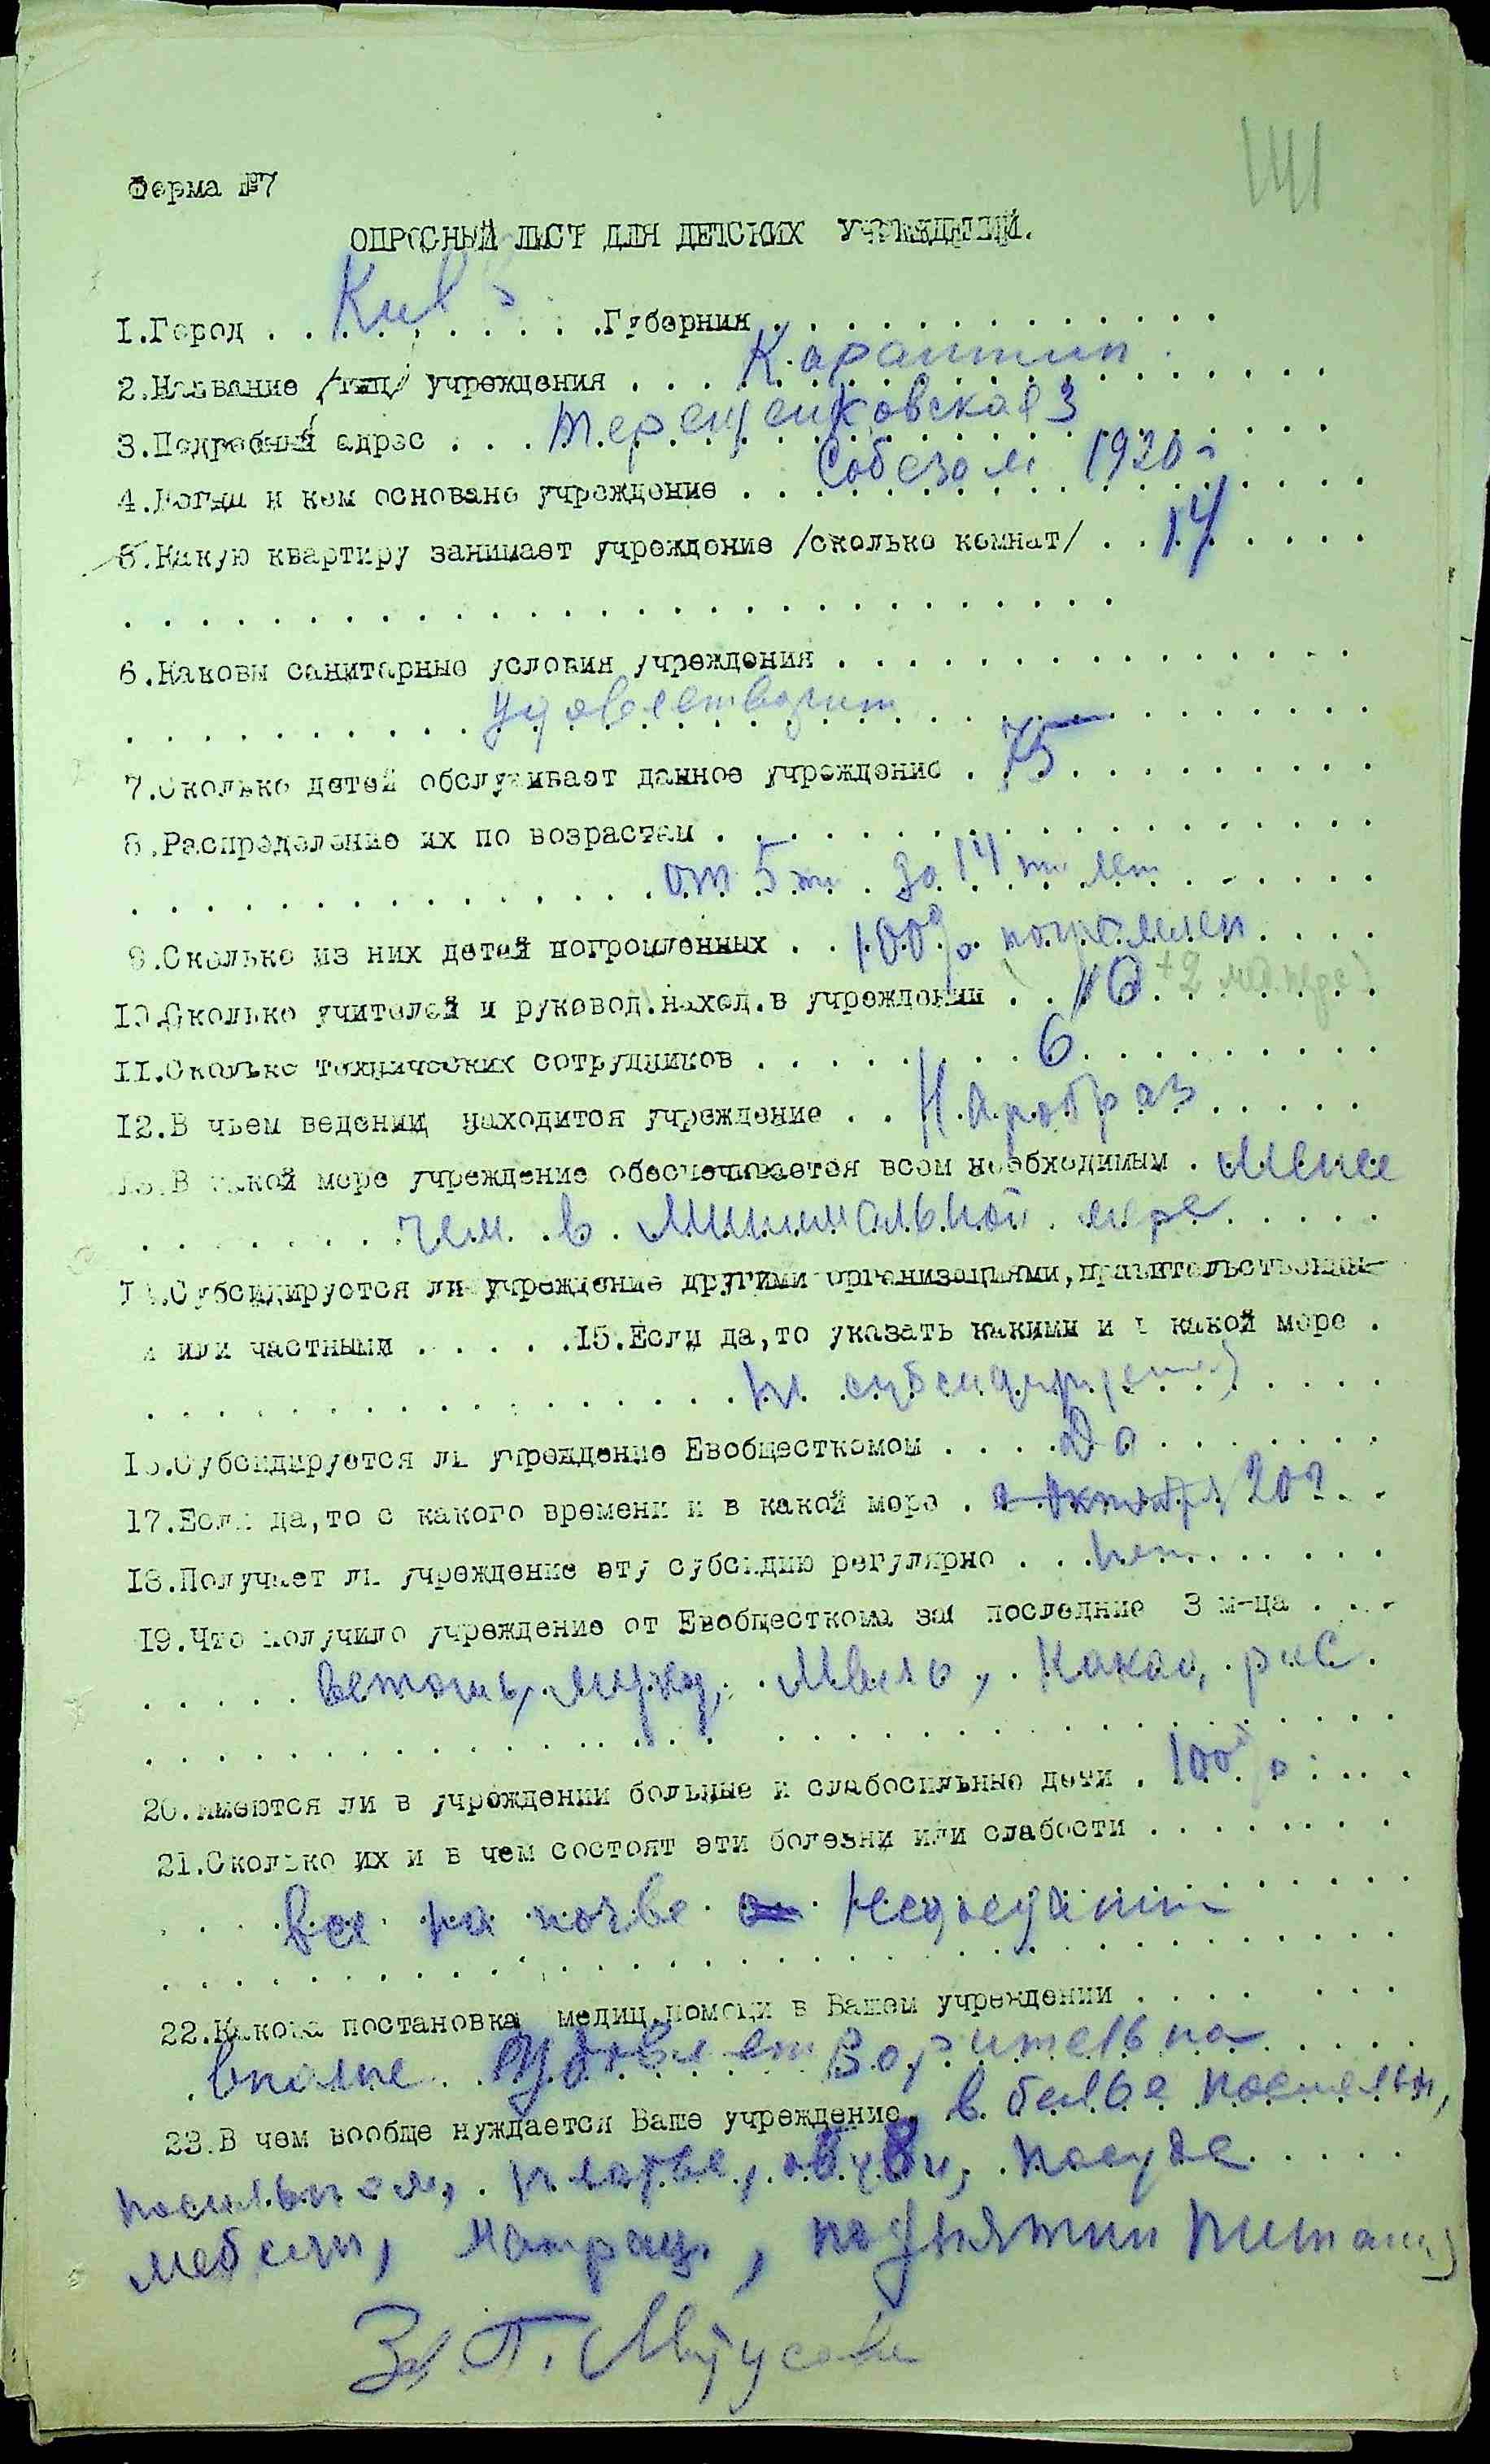 141
Форма №7
ОПРОСНЫЙ ЛИСТ ДЛЯ ДЕТСКИХ УЧРЕЖДЕНИЙ.
1.Город . . Киев . . . .Губерния . . . . . . . . . . . .
2.Название /тип/ учреждения . . . Карантин . . . .
3.Подробный адрес . . . Терещенковская 3 . . .
4.Когда и кем основано учреждение . . Собезом 1920 г
5.Какую квартиру занимает учреждение /сколько комнат/ . . 14 . . . .
. . . . . . . . . . . . . . . . . . . . . . . . . . . .
6.Каковы санитарные условия учреждения . . . . . . . . . . . . . . .
. . . . . . . . . . удовлетворит . . . . . . . . . .
7.Сколько детей обслуживает данное учреждение . . 75 . . . . . . . .
8.Распределение их по возрастам . . . . . . . . . . . . . . . . . . .
. . . . . . . . . . . . . . . от 5 ти до 14 ти лет . . . . . .
9.Сколько из них детей погромленных . . 100% погромлен . . . .
10.Сколько учителей и руковод.наход.в учреждении . . 10 +2
11.Сколько технических сотрудников . . . . . . . . 6 . . . . . . . . .
12.В чьем ведении находится учреждение . . Наробраз . . . . .
13.В какой мере учреждение обеспечивается всем необходимым . менее
. . . . . . . чем в минимальной мере . . . . .
14.Субсидируется ли учреждение другими организациями,правительственны-
и или частными . . . . .15.Если да,то указать какими и в какой мере .
. . . . . . . . . . . . . . . . . не субсидируется . . . .
16.Субсидируется ли учреждение Евобщесткомом . . . . Да . . . . . . .
17.Если да,то с какого времени и в какой мере . с Октября 20 г. .
18.Получает ли учреждение эту субсидию регулярно . . . нет . . . . . .
19.Что получило учреждение от Евобщесткома за последние 3 м-ца . . .
. . . . . Ветошь, муку, мыло, какао, рис.
. . . . . . . . . . . . . . . . . . . . . . . . . . . . . . .
20.Имеются ли в учреждении больные и слабосильные дети . 100% . . . .
21.Сколько их и в чем состоят эти болезни или слабости . . . . . . . .
. . . все на почве недоедания
. . . . . . . . . . . . . . . . . . . . . . . . . . . . . . .
22.Какова постановка медиц.помощи в Вашем учреждении . . . . . . .
. вполне удовлетворительна . . . .
23.В чем вообще нуждается Ваше учреждение, в белье постельн,
носильном, платье, обуви, посуде . . . . .
мебели, матрац., поднятии питания
Зав. П.